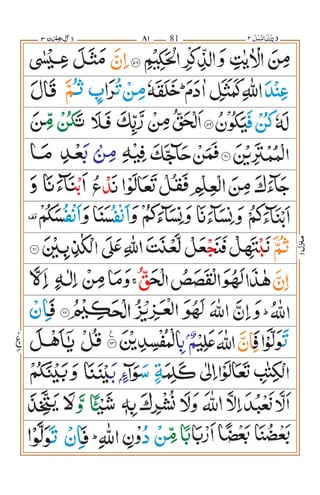 تلك الرسل ٣ 81 ٨١ ال عمرٰن ٣
مِنَ الْاٰيٰتِ وَ الذِّكْرِ الْحَكِيْمِ ﴿٥٨﴾ اِنَّ مَثَلَ عِيْسٰى
عِنْدَ اللّٰهِ كَمَثَلِ اٰدَمَ ؕ خَلَقَهٗ مِنْ تُرَابٍ ثُمَّ قَالَ
لَهٗ كُنْ فَيَكُوْنُ ﴿٥٩﴾ اَلْحَقُّ مِنْ رَّبِّكَ فَلَا تَكُنْ مِّنَ
الْمُمْتَرِيْنَ ﴿٦٠﴾ فَمَنْ حَآجَّكَ فِيْهِ مِنْۢ بَعْدِ مَا
جَآءَكَ مِنَ الْعِلْمِ فَقُلْ تَعَالَوْا نَدْعُ اَبْنَآءَنَا وَ
اَبْنَآءَكُمْ وَنِسَآءَنَا وَنِسَآءَكُمْ وَاَنْفُسَنَا وَاَنْفُسَكُمْ
ثُمَّ نَبْتَهِلْ فَنَجْعَلْ لَّعْنَتَ اللّٰهِ عَلَى الْكٰذِبِيْنَ ﴿٦١﴾
اِنَّ هٰذَا لَهُوَ الْقَصَصُ الْحَقُّ ۚ وَمَا مِنْ اِلٰهٍ اِلَّا
اللّٰهُ ؕ وَاِنَّ اللّٰهَ لَهُوَ الْعَزِيْزُ الْحَكِيْمُ ﴿٦٢﴾ فَاِنْ
تَوَلَّوْا فَاِنَّ اللّٰهَ عَلِيْمٌۢ بِالْمُفْسِدِيْنَ ﴿٦٣﴾ قُلْ يٰۤاَهْلَ
الْكِتٰبِ تَعَالَوْا اِلٰى كَلِمَةٍ سَوَآءٍۢ بَيْنَنَا وَبَيْنَكُمْ
اَلَّا نَعْبُدَ اِلَّا اللّٰهَ وَلَا نُشْرِكَ بِهٖ شَيْئًا وَّلَا يَتَّخِذَ
بَعْضُنَا بَعْضًا اَرْبَابًا مِّنْ دُوْنِ اللّٰهِ ؕ فَاِنْ تَوَلَّوْا